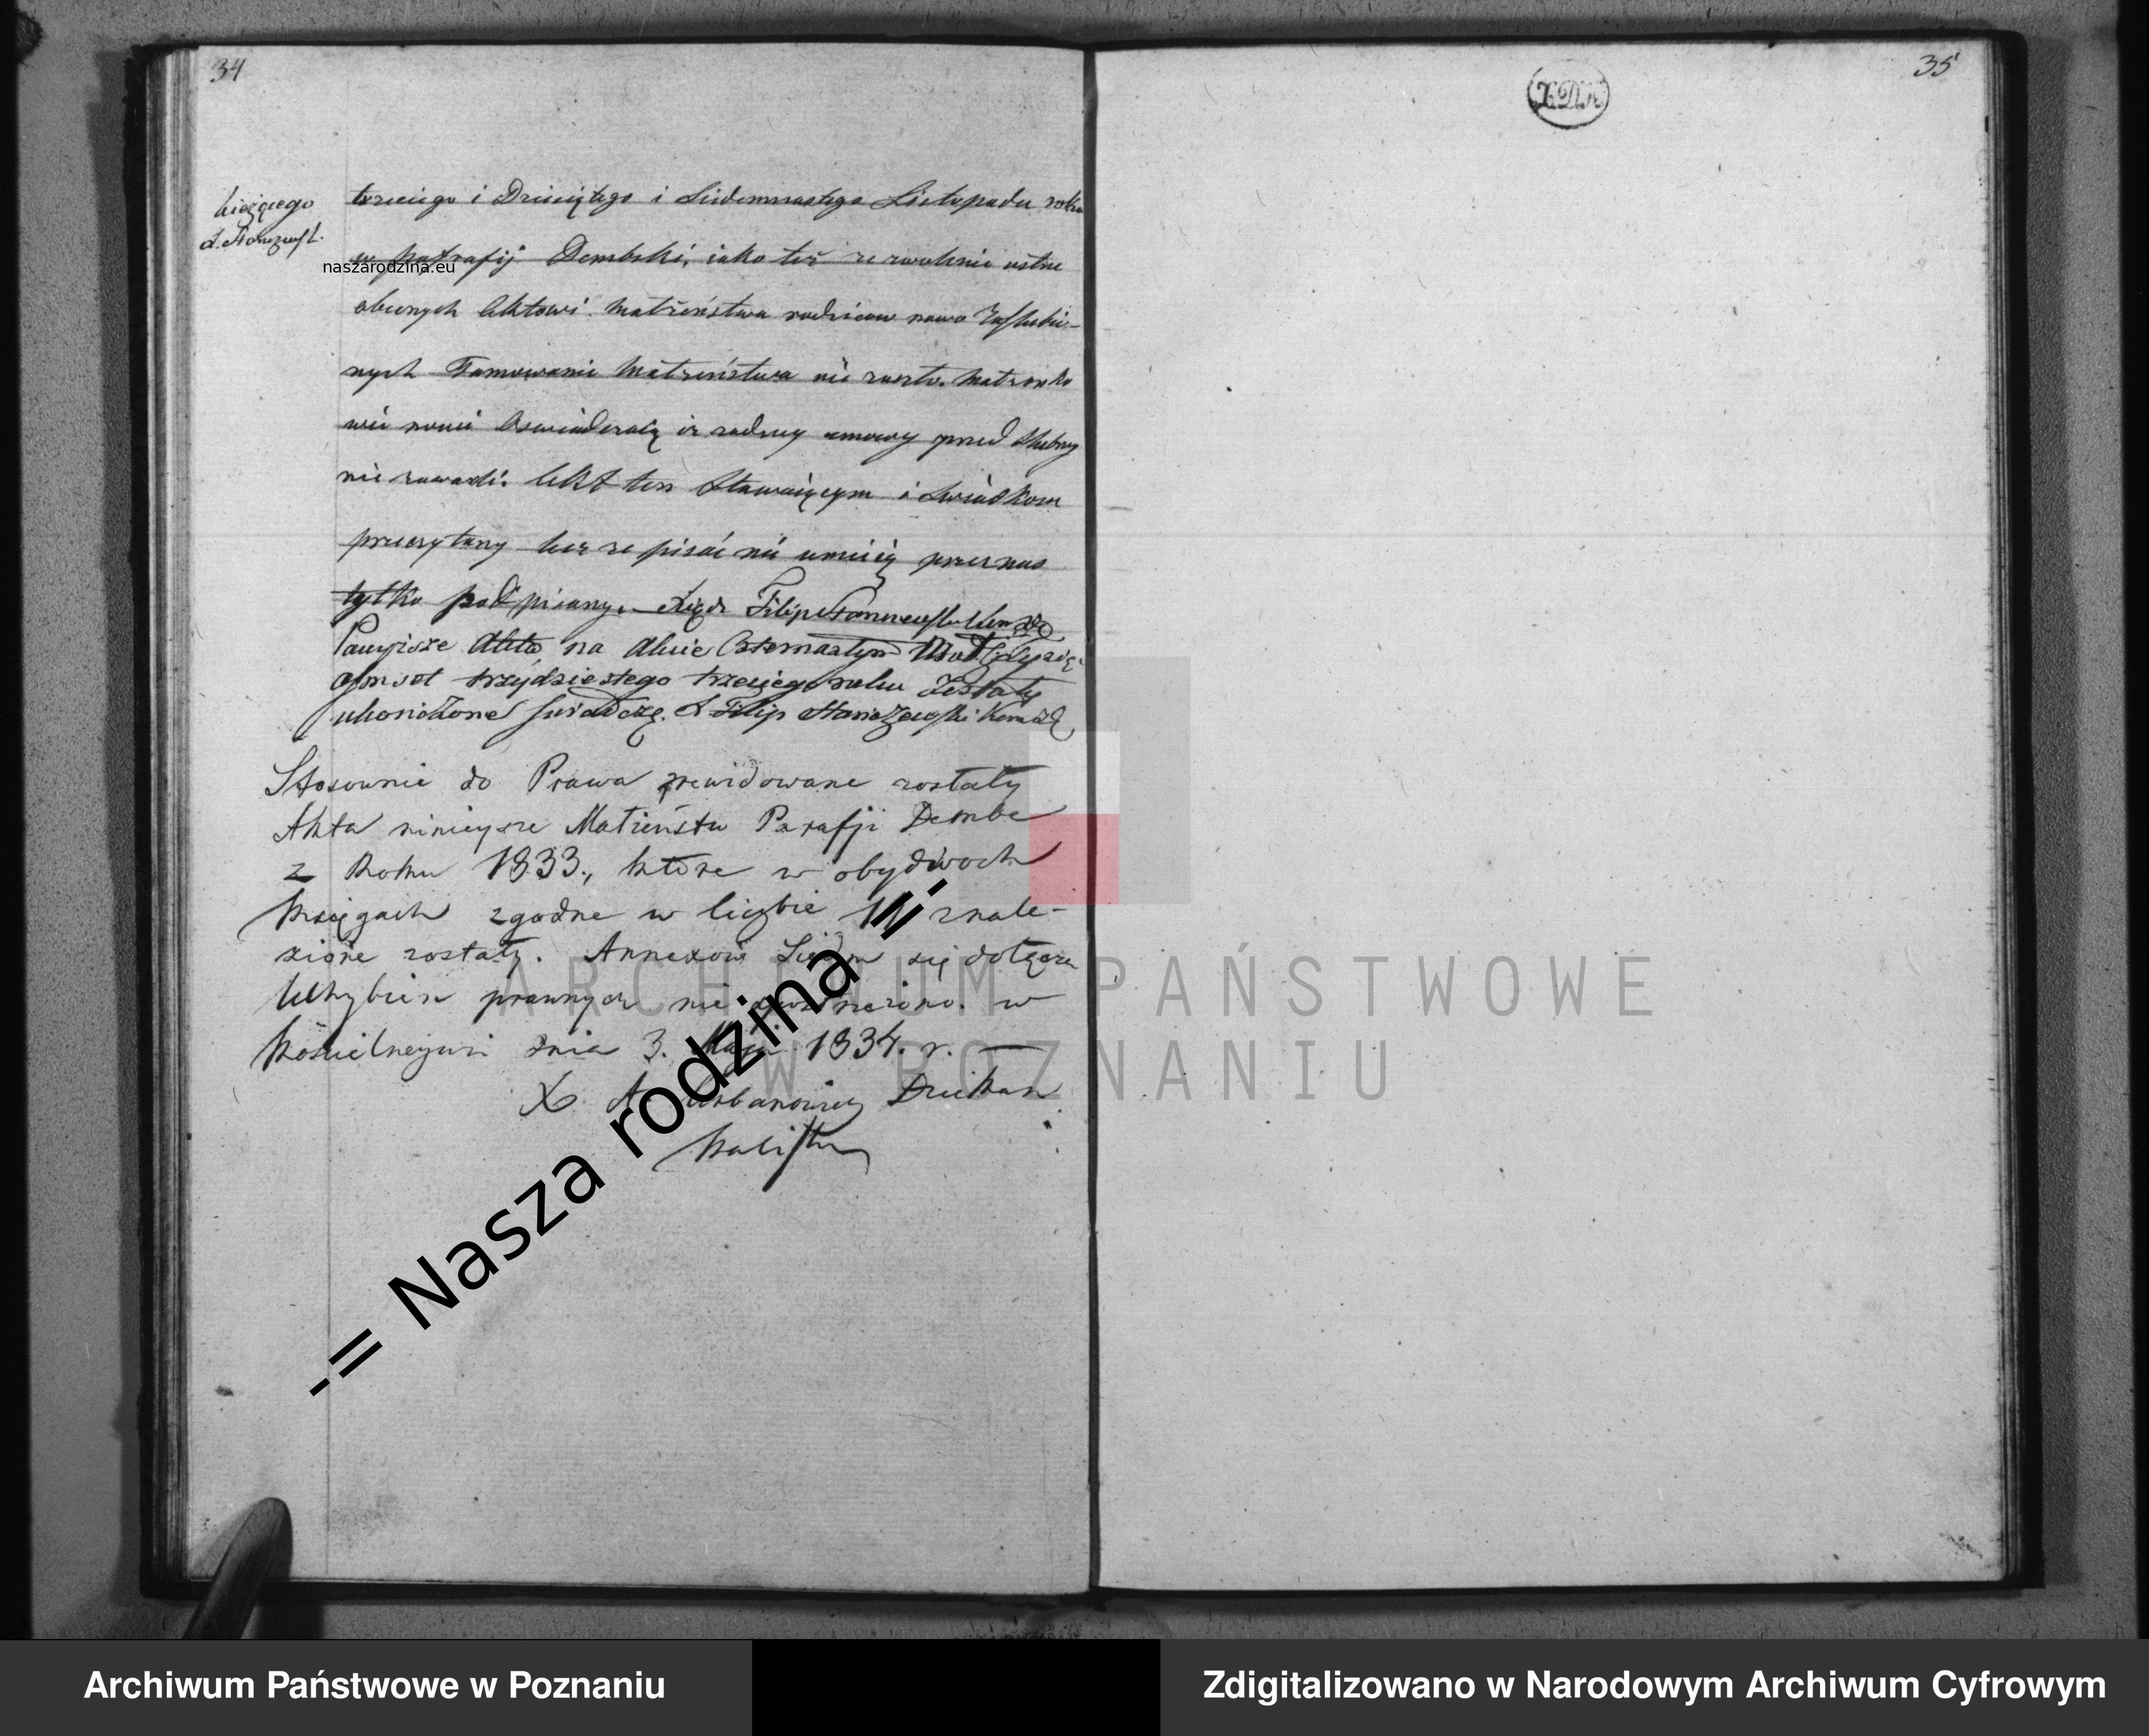 34
bieżącego
trzeciego i Dziesiątego i Siedemnastego Listopada roku
w parafij Dembskij, iako też zezwolenie ustne
obecnych Aktowi Małżeństwa rodziców nowo Zaślubio-
nych Tamowanie Małżeństwa nie zaszło. Małżonko
wie nowi Oswiadczaią iż żadney umowy przed Slubney
nie zawarli. Akt ten Stawaiącym i Swiadkom
przeczytany lecz że pisać nie umieią przez nas
tylko podpisany. Xiądz Filip Stanczewski
Powyższe Akta na Akcie Czternastym
osmset trzydziestego trzeciego roku Zostały
ukończone swiadczę. X Filip Stanczewski
Stosownie do Prawa zrewidowane zostały
Akta ninieysze Małżeństw Parafji Dembe
z Roku 1833., które w obydwóch
księgach zgodne w liczbie znale-
zione zostały. Annexów Siedm się dołącza
Uchybień prawnych nie w
Kościelneywsi dnia 3. Maja 1834. r.
X. A. Urbanowicz Dziekan
Kaliski
35
naszarodzina.eu
-= Nasza rodzina =-
ARCHIWUM PAŃSTWOWE
W POZNANIU
Archiwum Państwowe w Poznaniu
Zdigitalizowano w Narodowym Archiwum Cyfrowym